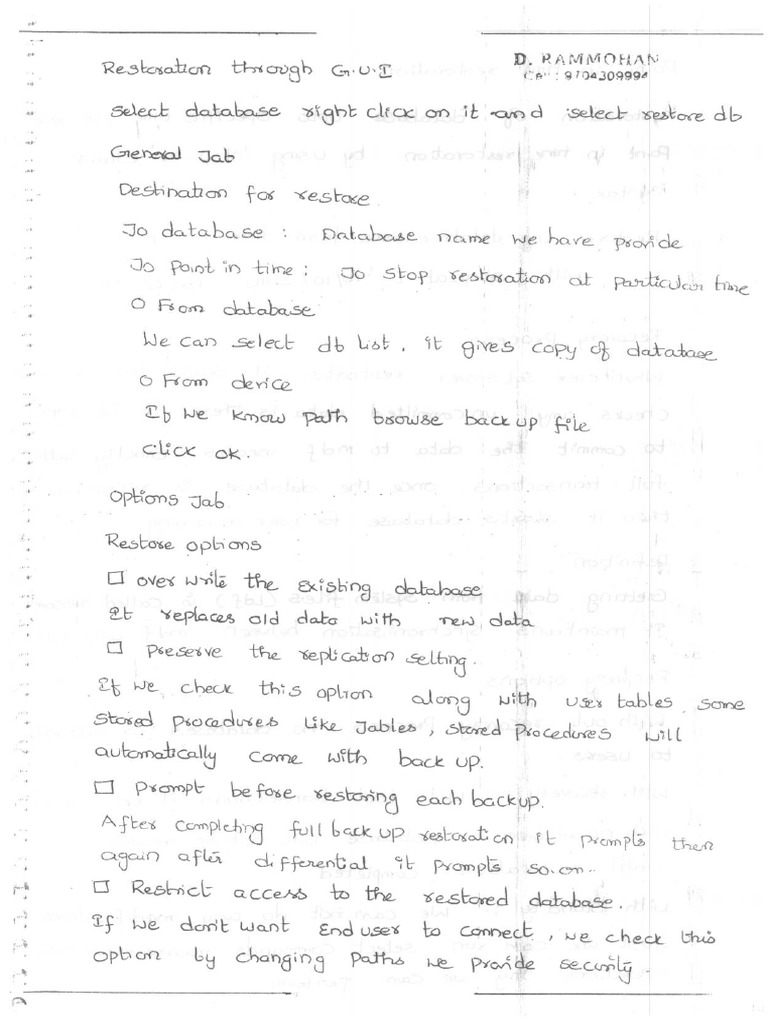 D. RAMMOHAN
Restoration through G.U.I
Cell : 9704309994
Select database right click on it and select restore db
General Tab
Destination for restore
To database : Database name we have provide
To Point in time : To stop restoration at particular time
O From database
We can select db list, it gives copy of database
O From device
If we know path browse back up file
Click ok.
Options Tab
Restore options
☐ over write the Existing database
It replaces old data with new data
☐ Preserve the replication setting.
If we check this option along with user tables some
stored Procedures like Tables, stored Procedures will
automatically come with back up.
☐ Prompt before restoring each backup.
After completing full back up restoration it prompts then
again after differential it prompts so.on..
☐ Restrict access to the restored database.
If we don't want End user to connect, we check this
option by changing Paths we provide security.